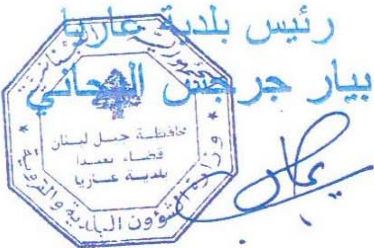 رئيس بلدية عاريا
بيار جرجس الهجاني
محافظة جبل لبنان
قضاء بعبدا
بلدية عاريا
وزارة الشؤون البلدية والقروية